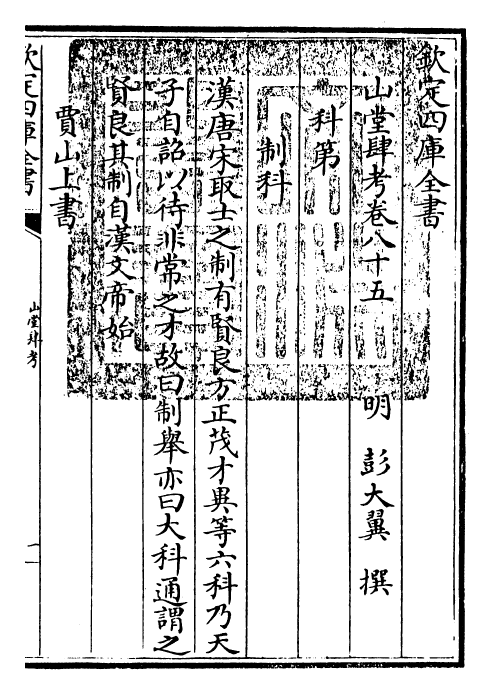 欽定四庫全書
山堂肆考卷八十五 明 彭大翼 撰
科第
制科
漢唐宋取士之制有賢良方正茂才異等六科乃天
子自詔以待非常之才故曰制舉亦曰大科通謂之
賢良其制自漢文帝始
賈山上書
欽定四庫全書
山堂肆考
一